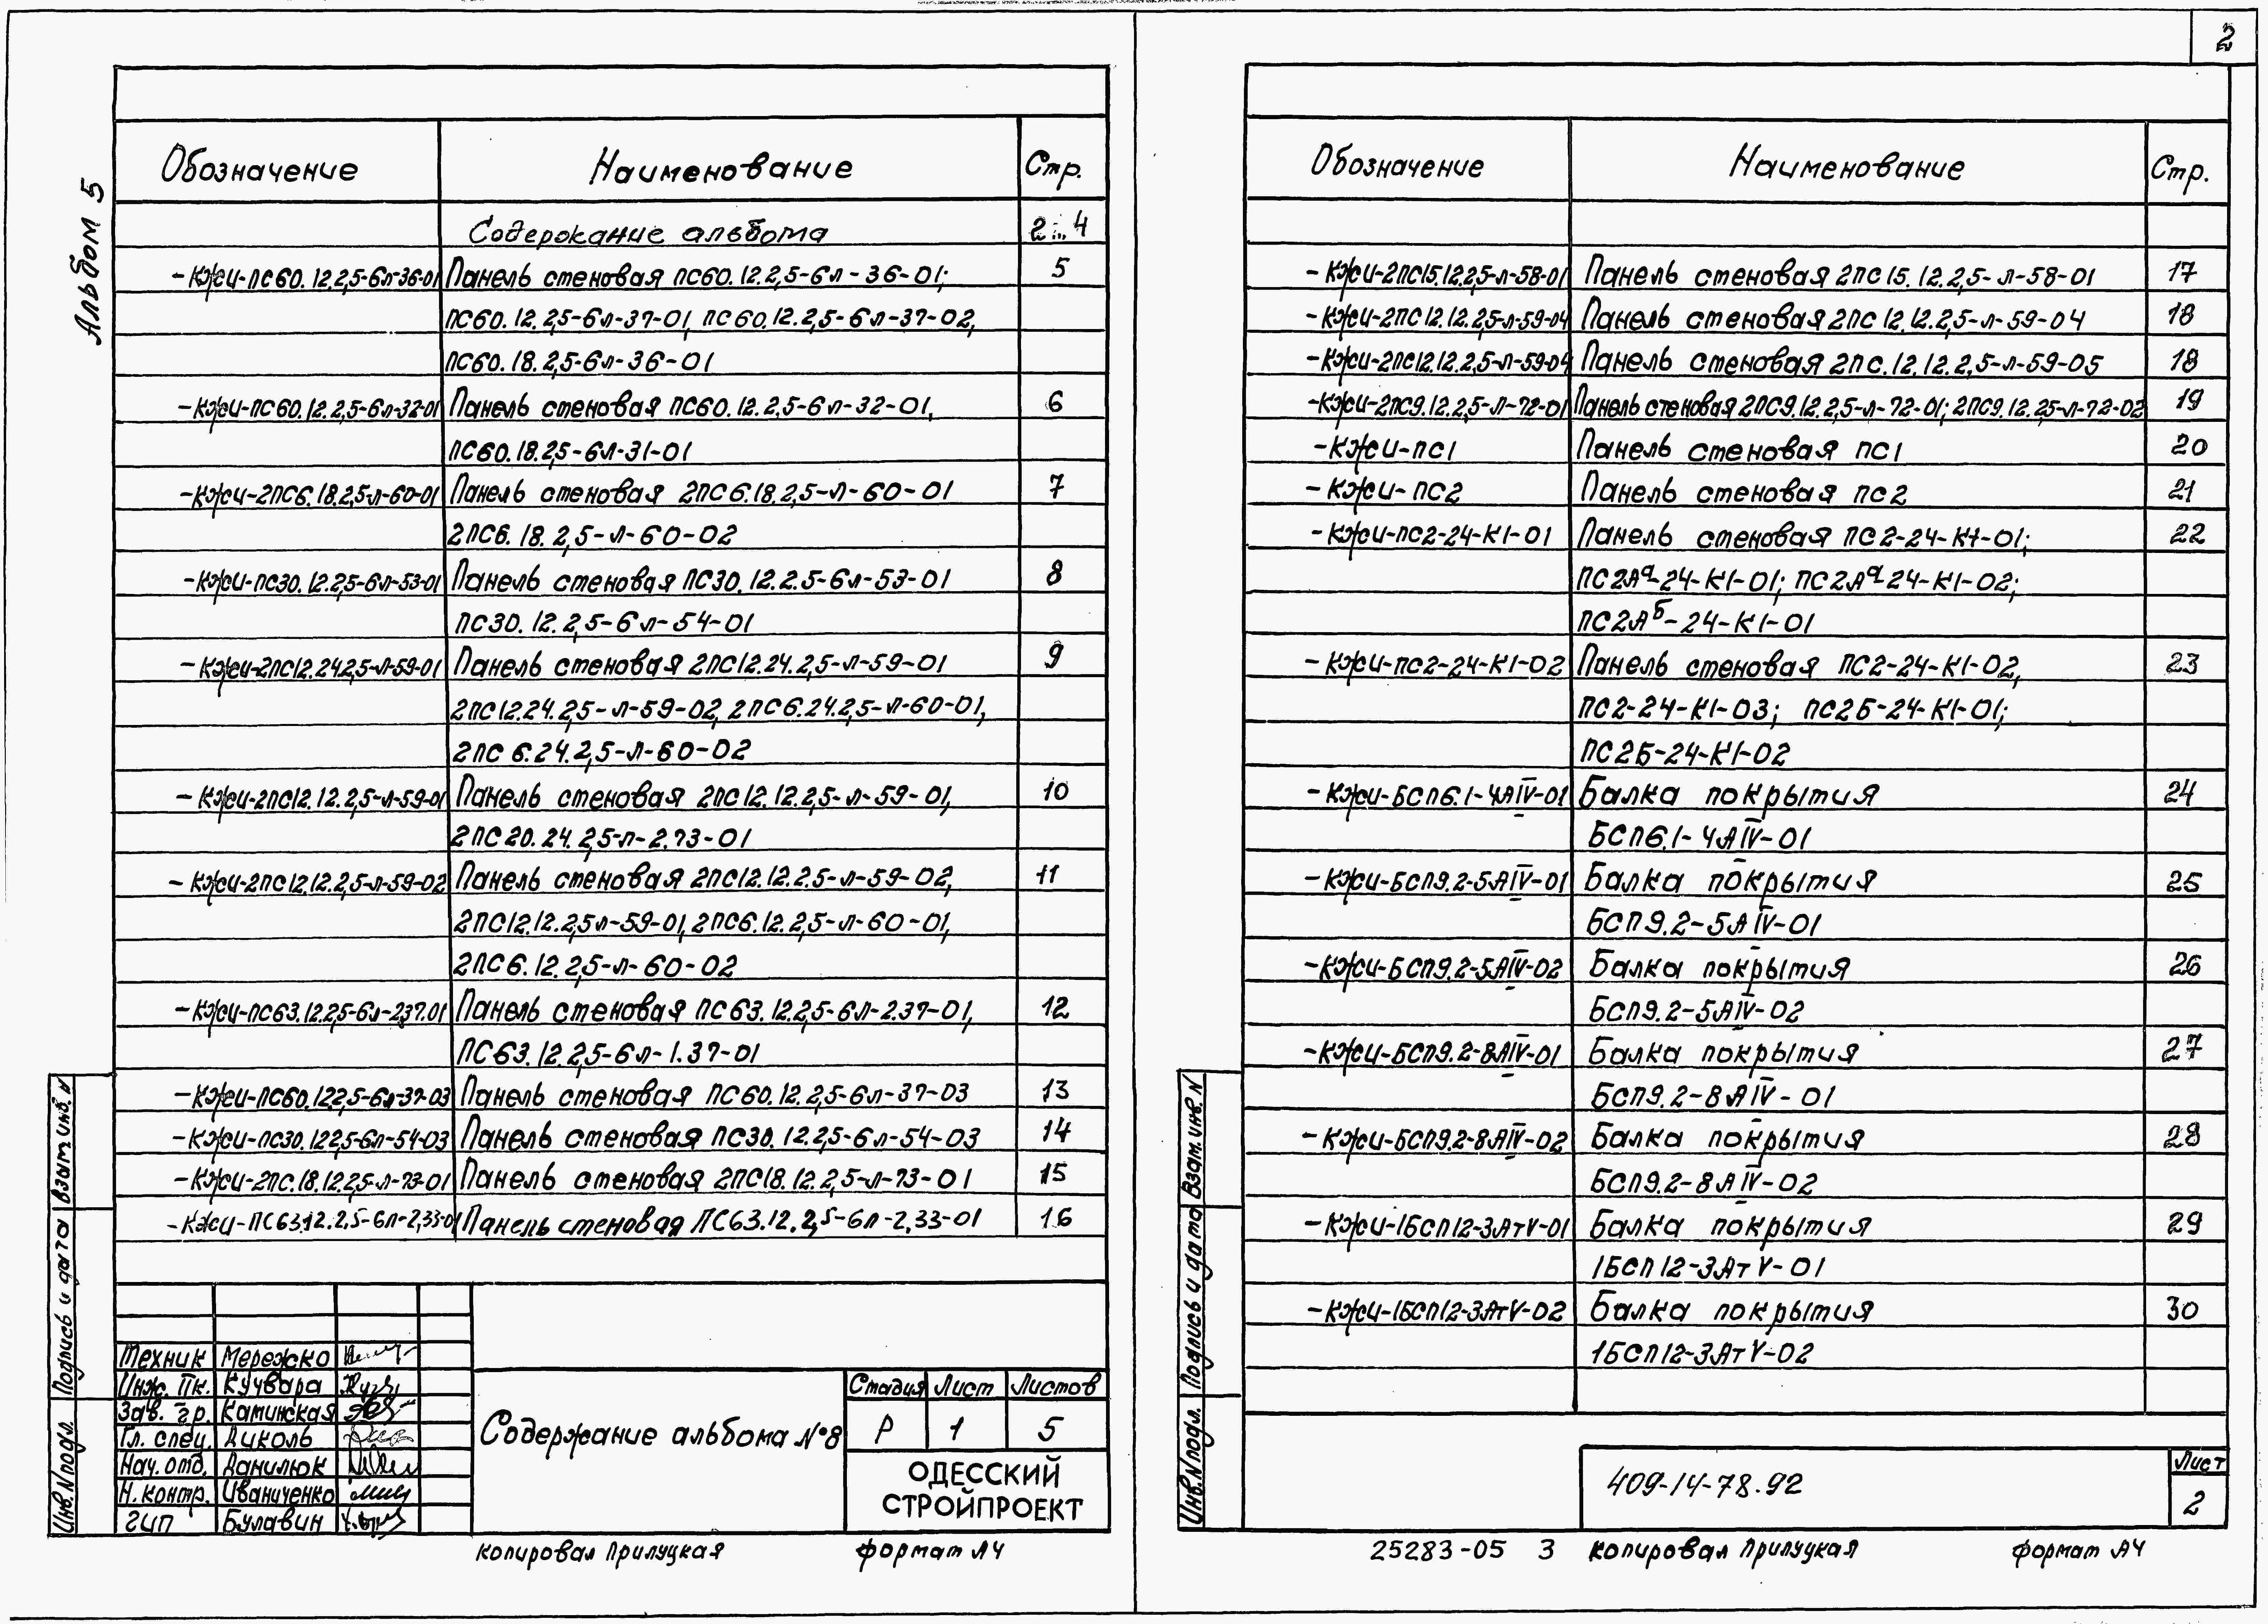 2
Альбом 5
Обозначение Наименование Стр.
Содержание альбома 2...4
-КЖИ-ПС60.12.2,5-6л-36-01 Панель стеновая ПС60.12.2,5-6л-36-01; 5
ПС60.12.2,5-6л-37-01, ПС60.12.2,5-6л-37-02,
ПС60.18.2,5-6л-36-01
-КЖИ-ПС60.12.2,5-6л-32-01 Панель стеновая ПС60.12.2,5-6л-32-01, 6
ПС60.18.2,5-6л-31-01
-КЖИ-2ПС6.18.2,5-л-60-01 Панель стеновая 2ПС6.18.2,5-л-60-01 7
2ПС6.18.2,5-л-60-02
-КЖИ-ПС30.12.2,5-6л-53-01 Панель стеновая ПС30.12.2.5-6л-53-01 8
ПС30.12.2,5-6л-54-01
-КЖИ-2ПС12.24.2,5-л-59-01 Панель стеновая 2ПС12.24.2,5-л-59-01 9
2ПС12.24.2,5-л-59-02, 2ПС6.24.2,5-л-60-01,
2ПС6.24.2,5-л-60-02
-КЖИ-2ПС12.12.2,5-л-59-01 Панель стеновая 2ПС12.12.2,5-л-59-01, 10
2ПС20.24.2,5-л-2.73-01
-КЖИ-2ПС12.12.2,5-л-59-02 Панель стеновая 2ПС12.12.2.5-л-59-02, 11
2ПС12.12.2,5л-59-01, 2ПС6.12.2,5-л-60-01,
2ПС6.12.2,5-л-60-02
-КЖИ-ПС63.12.2,5-6л-2,37.01 Панель стеновая ПС63.12.2,5-6л-2.37-01, 12
ПС63.12.2,5-6л-1.37-01
-КЖИ-ПС60.12.2,5-6л-37-03 Панель стеновая ПС60.12.2,5-6л-37-03 13
-КЖИ-ПС30.12.2,5-6л-54-03 Панель стеновая ПС30.12.2,5-6л-54-03 14
-КЖИ-2ПС.18.12.2,5-л-73-01 Панель стеновая 2ПС18.12.2,5-л-73-01 15
-КЖИ-ПС63.12.2,5-6л-2,33-01 Панель стеновая ПС63.12.2,5-6л-2,33-01 16
Техник Мережко
Инж. IIк. Кучвара
Зав. гр. Каминская
Гл. спец. Диколь
Нач. отд. Данилюк
Н. контр. Иваниченко
ГИП Булавин
Содержание альбома №8
Стадия Лист Листов
Р 1 5
ОДЕССКИЙ
СТРОЙПРОЕКТ
Инв. N подл. Подпись и дата Взам. инв. N
Копировал Прилуцкая формат А4
Обозначение Наименование Стр.
-КЖИ-2ПС15.12.2,5-л-58-01 Панель стеновая 2ПС15.12.2,5-л-58-01 17
-КЖИ-2ПС12.12.2,5-л-59-04 Панель стеновая 2ПС12.12.2,5-л-59-04 18
-КЖИ-2ПС12.12.2,5-л-59-04 Панель стеновая 2ПС.12.12.2,5-л-59-05 18
-КЖИ-2ПС9.12.2,5-л-72-01 Панель стеновая 2ПС9.12.2,5-л-72-01; 2ПС9.12.2,5-л-72-02 19
-КЖИ-ПС1 Панель стеновая ПС1 20
-КЖИ-ПС2 Панель стеновая ПС2 21
-КЖИ-ПС2-24-К1-01 Панель стеновая ПС2-24-К1-01; 22
ПС2Аа-24-К1-01; ПС2Аа-24-К1-02;
ПС2Аб-24-К1-01
-КЖИ-ПС2-24-К1-02 Панель стеновая ПС2-24-К1-02, 23
ПС2-24-К1-03; ПС2Б-24-К1-01;
ПС2Б-24-К1-02
-КЖИ-БСП6.1-4АIV-01 Балка покрытия 24
БСП6.1-4АIV-01
-КЖИ-БСП9.2-5АIV-01 Балка покрытия 25
БСП9.2-5АIV-01
-КЖИ-БСП9.2-5АIV-02 Балка покрытия 26
БСП9.2-5АIV-02
-КЖИ-БСП9.2-8АIV-01 Балка покрытия 27
БСП9.2-8АIV-01
-КЖИ-БСП9.2-8АIV-02 Балка покрытия 28
БСП9.2-8АIV-02
-КЖИ-1БСП12-3АтV-01 Балка покрытия 29
1БСП12-3АтV-01
-КЖИ-1БСП12-3АтV-02 Балка покрытия 30
1БСП12-3АтV-02
Инв. N подл. Подпись и дата Взам. инв. N
409-14-78.92
Лист
2
25283-05 3 Копировал Прилуцкая формат А4